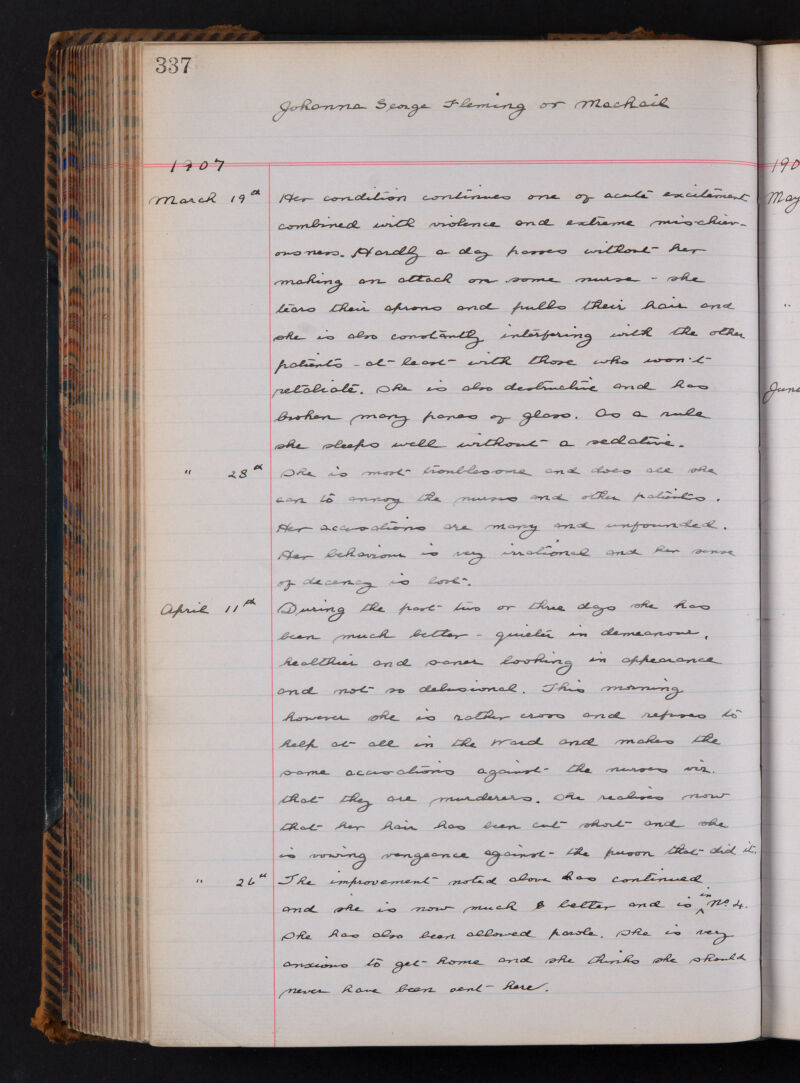 337
Johanna George Fleming or Mackail
1907
March 19th Her condition continues one of acute excitement
combined with violence and extreme mischiev-
ousness. Hardly a day passes without her
making an attack on some nurse - she
tears their aprons and pulls their hair and
she is also constantly interfering with the other
patients - at least with those who won't
retaliate. She is also destructive and has
broken many panes of glass. As a rule
she sleeps well without a sedative.
" 28th She is most troublesome and does all she
can to annoy the nurses and other patients.
Her accusations are many and unfounded.
Her behaviour is very irrational and her sense
of decency is lost.
April 11th During the past two or three days she has
been much better - quieter in demeanour,
healthier and saner looking in appearance
and not so delusional. This morning
however she is rather cross and refuses to
help at all in the Ward and makes the
same accusations against the nurses viz.
that they are murderers. She realises now
that her hair has been cut short and she
is vowing vengeance against the person that did it.
" 26th The improvement noted above has continued
and she is now much better and is in No 4.
She has also been allowed parole. She is very
anxious to get home and she thinks she should
never have been sent here.
190
May
"
June